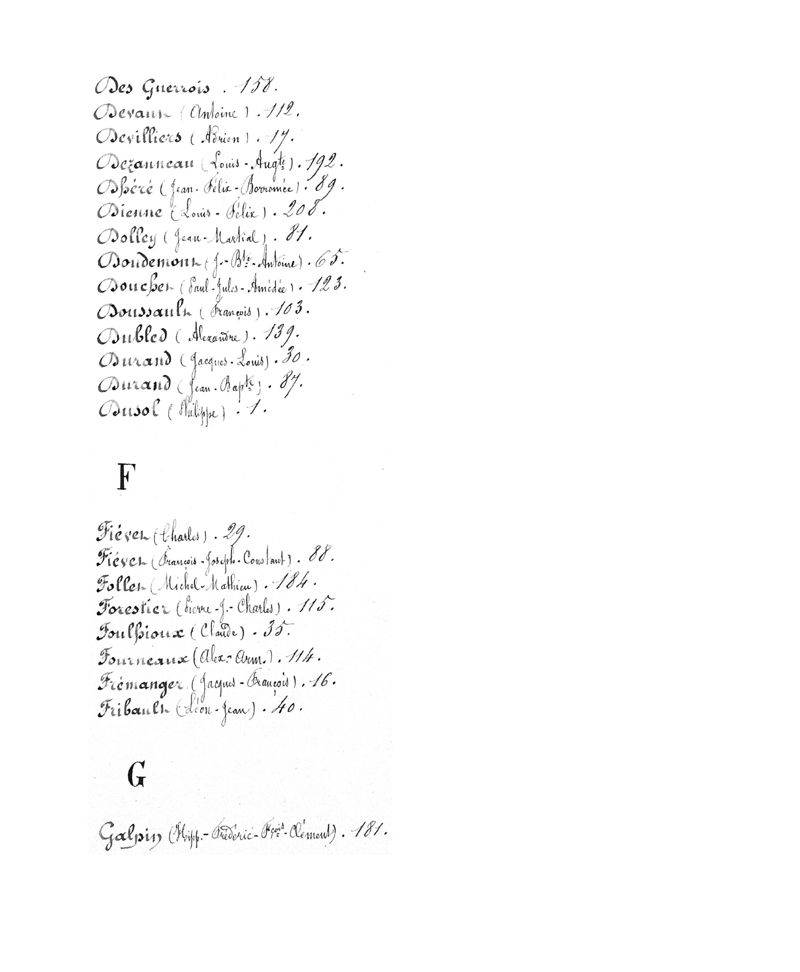 Des Guerrois . 158.
Devaux (Antoine) . 112.
Devilliers (Adrien) . 17.
Dezanneau (Louis-Augte) . 192.
Dhéré (Jean-Félix-Borromée) . 89.
Dienne (Louis-Félix) . 208.
Dolley (Jean-Martial) . 81.
Doudemont (J.-Bte-Antoine) . 65.
Doucher (Paul-Jules-Amédée) . 123.
Doussault (François) . 103.
Dubled (Alexandre) . 139.
Durand (Jacques-Louis) . 30.
Durand (Jean-Bapte) . 87.
Dusol (Philippe) . 1.
F
Fiévet (Charles) . 29.
Fiévet (François-Joseph-Constant) . 88.
Follet (Michel-Mathieu) . 184.
Forestier (Pierre-J.-Charles) . 115.
Foulhioux (Claude) . 35.
Fourneaux (Alex.-Arm.) . 114.
Frémanger (Jacques-François) . 16.
Fribault (Léon-Jean) . 40.
G
Galpin (Hipp.-Frédéric-Fçois-Clément) . 181.